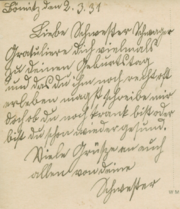 Bömitz den 2.3.31
Liebe Schwester Schwager
Gratuliere Dich vielmals
zu deinen Geburtstag
und das du ihn noch
erleben magst schreibe mir
doch ob du noch krank bist oder
bist du schon wieder gesund.
Viele Grüße an euch
allen von deine
Schwester